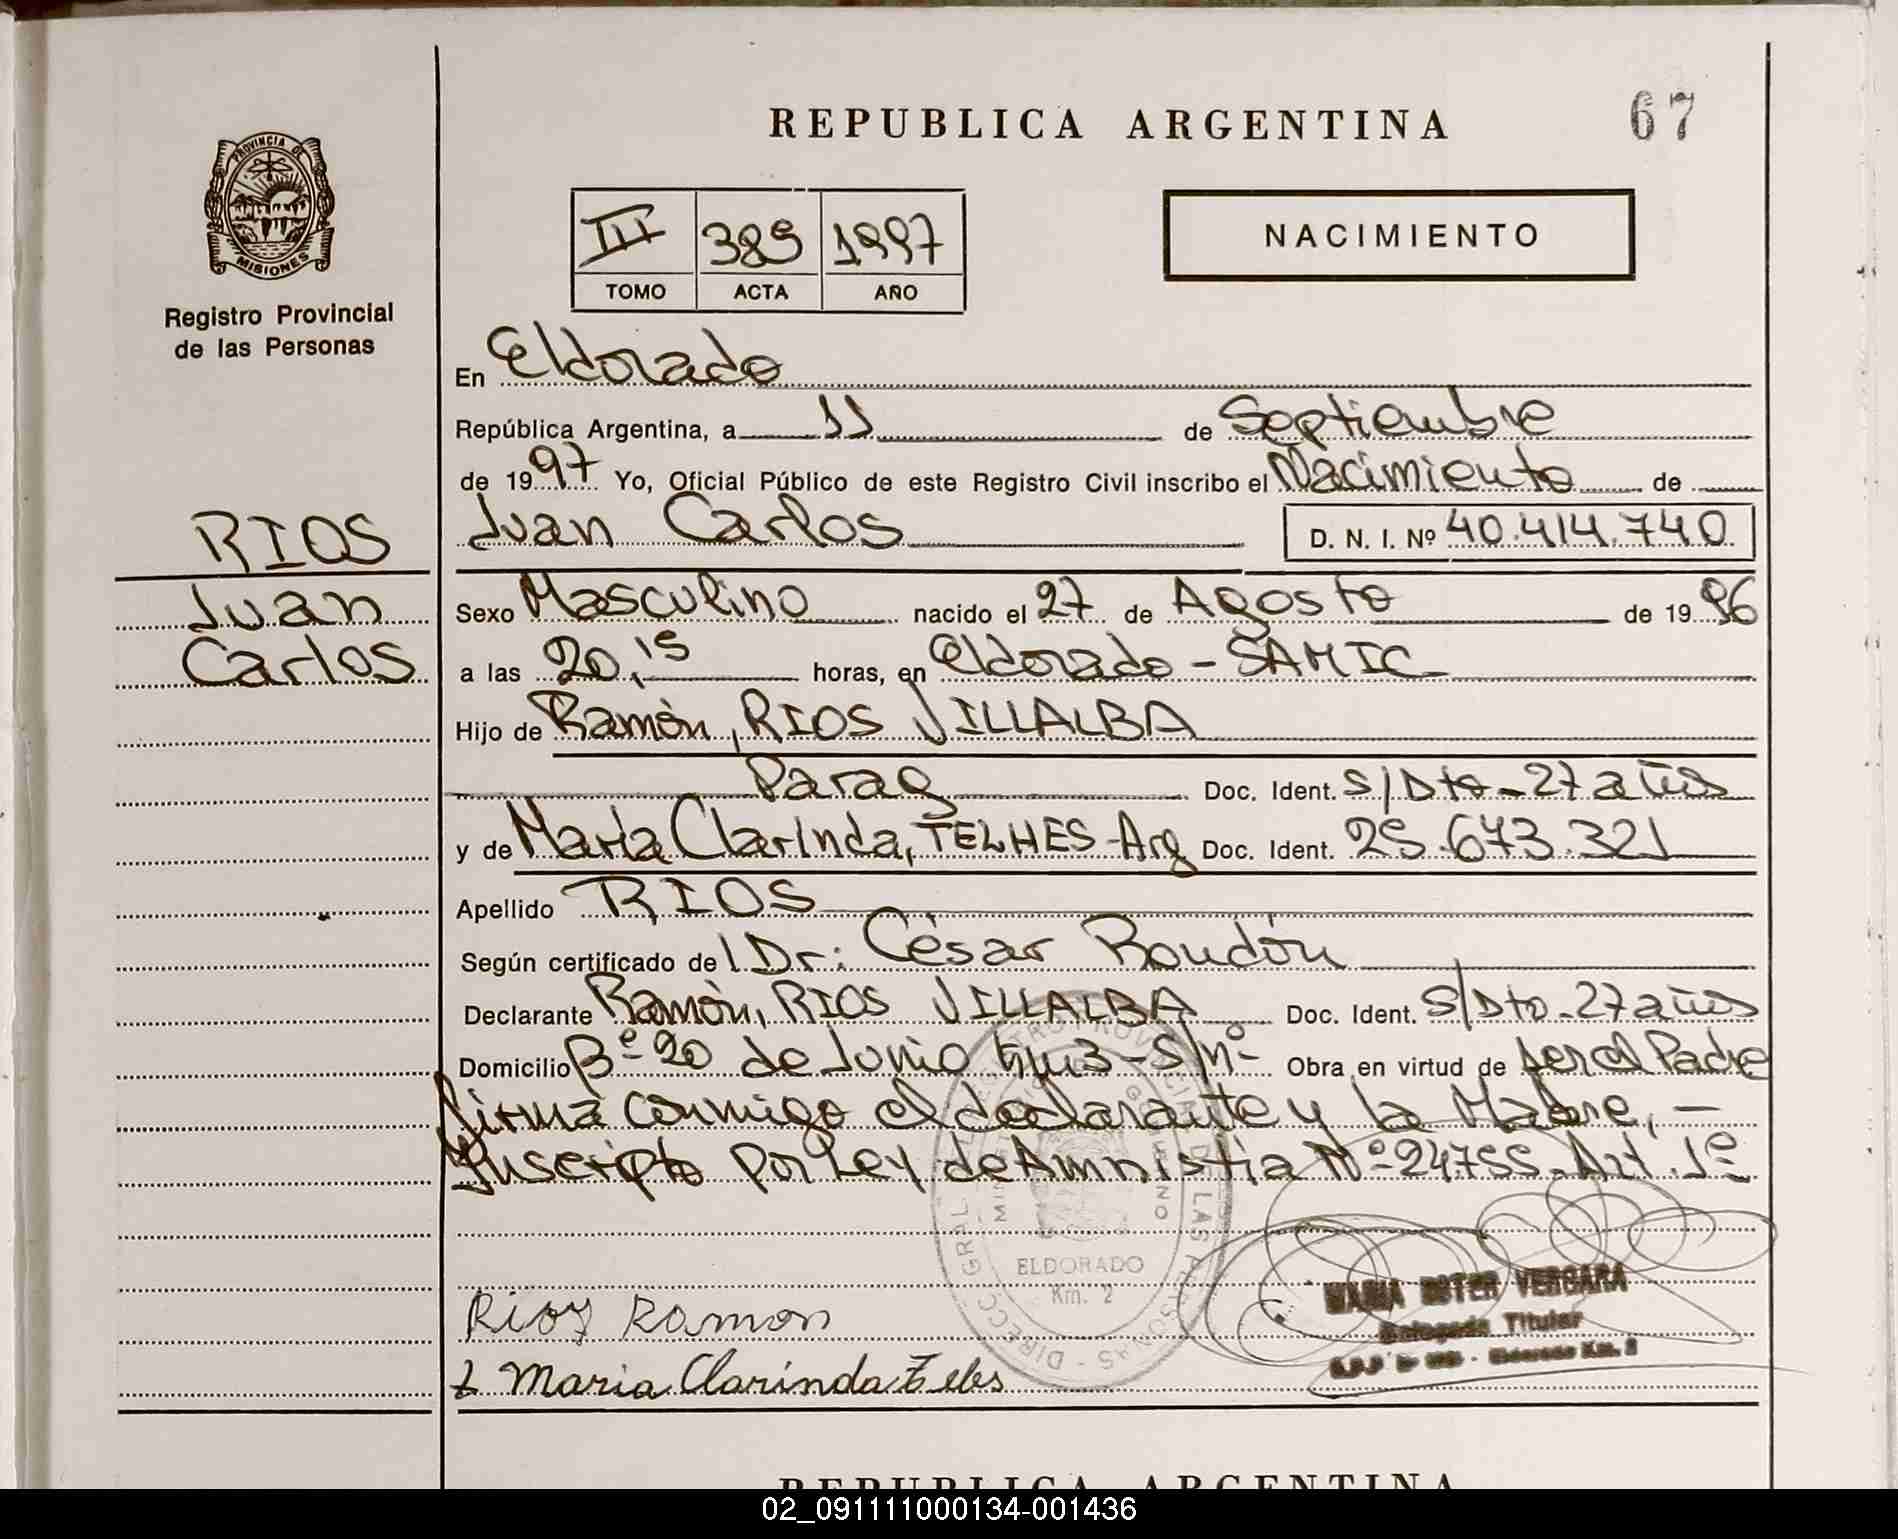 REPUBLICA ARGENTINA
67
PROVINCIA DE
MISIONES
Registro Provincial
de las Personas
III 389 1997
TOMO ACTA AÑO
NACIMIENTO
En Eldorado
República Argentina, a 11 de Septiembre
de 1997 Yo, Oficial Público de este Registro Civil inscribo el Nacimiento de
RIOS
Juan Carlos D. N. I. Nº 40.414.740
Juan
Sexo Masculino nacido el 27 de Agosto de 1996
Carlos
a las 20,15 horas, en Eldorado - SAMIC
Hijo de Ramón, RIOS VILLALBA
Parag Doc. Ident. S/Dto - 27 años
y de María Clarinda, TELHES - Arg Doc. Ident. 25.673.321
Apellido RIOS
Según certificado del Dr: César Roudón
Declarante Ramón, RIOS VILLALBA Doc. Ident. S/Dto - 27 años
Domicilio Bº 20 de Junio km 3 - S/Nº - Obra en virtud de ser el Padre
firma conmigo el declarante y la Madre, -
Inscripto por Ley de Amnistia Nº 24755 - Art. 1º
ELDORADO
Km. 2
MARIA ESTER VERGARA
Delegada Titular
Rios Ramon
Maria Clarinda Teles
REPUBLICA ARGENTINA
02_091111000134-001436